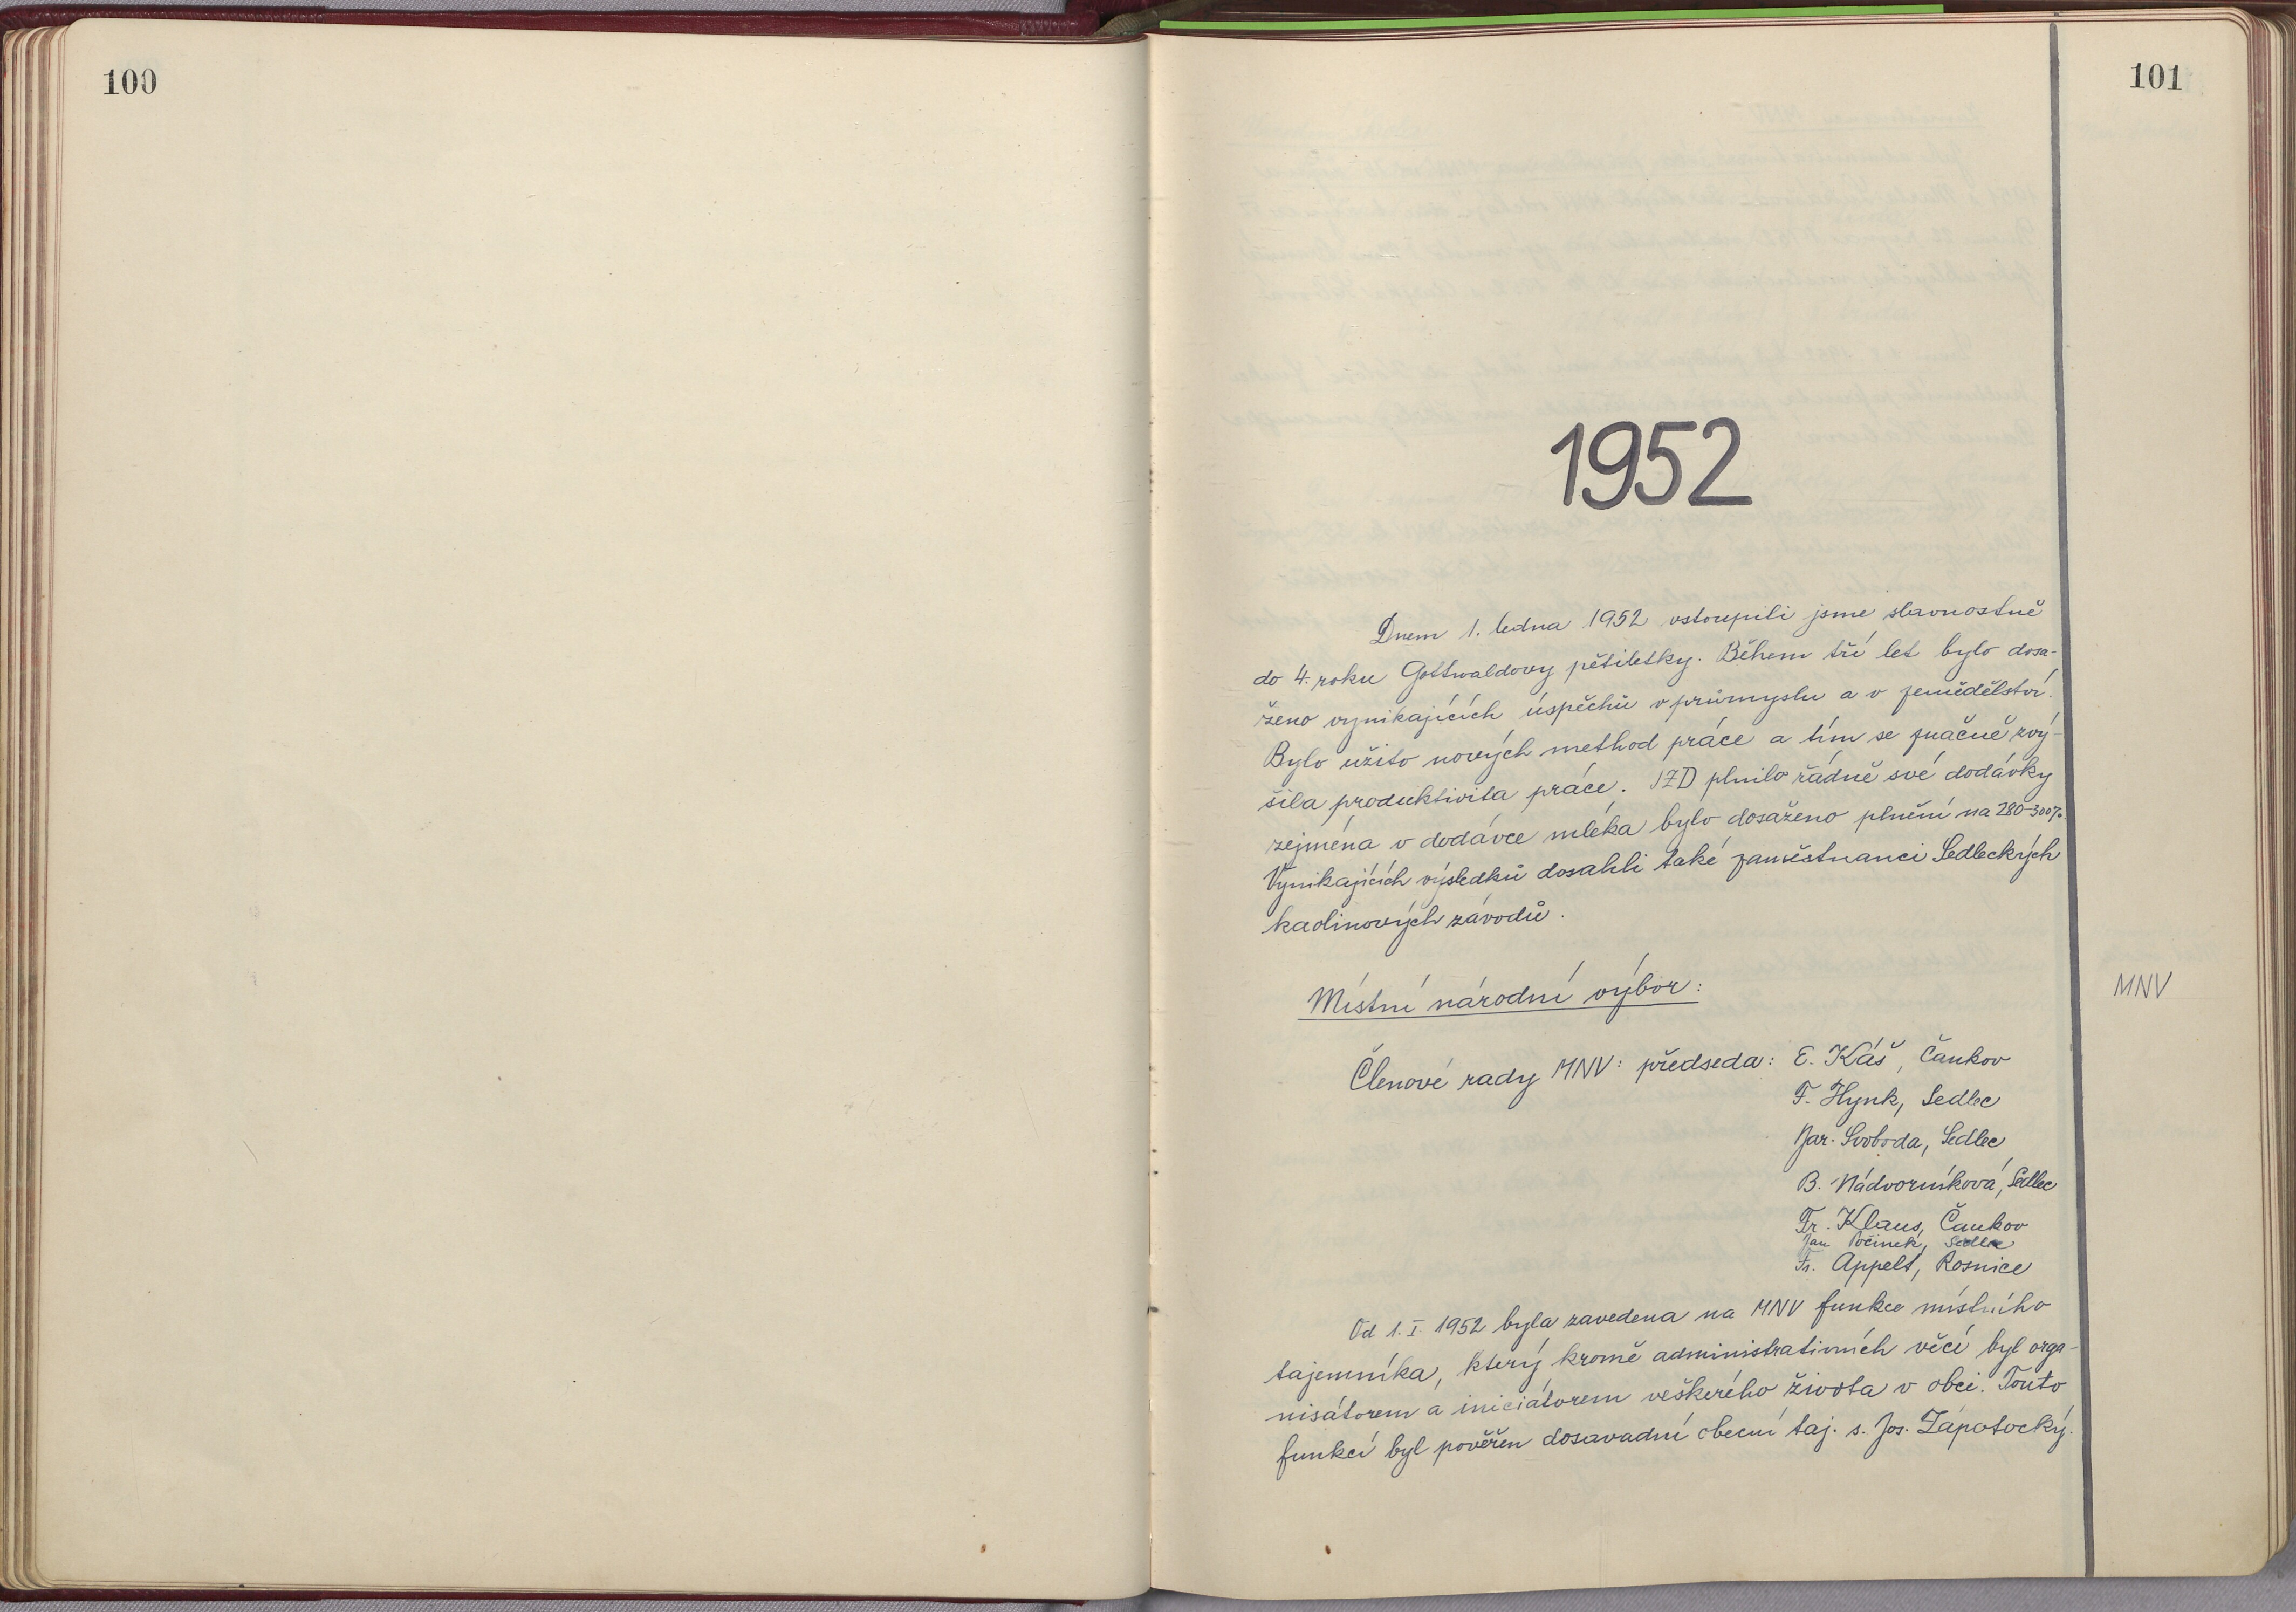 100
101
1952
Dnem 1. ledna 1952 vstoupili jsme slavnostně
do 4. roku Gottwaldovy pětiletky. Během tří let bylo dosa-
ženo vynikajících úspěchů v průmyslu a v zemědělství.
Bylo užito nových method práce a tím se značně zvý-
šila produktivita práce. JZD plnilo řádně své dodávky
zejména v dodávce mléka bylo dosaženo plnění na 280-300%.
Vynikajících výsledků dosáhli také zaměstnanci Sedleckých
kaolinových závodů.
Místní národní výbor:
MNV
Členové rady MNV: předseda: E. Káš, Čankov
F. Hynk, Sedlec
Jar. Svoboda, Sedlec
B. Nádvorníková, Sedlec
Fr. Klaus, Čankov
Jan Počinek, Sedlec
Fr. Appelt, Rosnice
Od 1. I. 1952 byla zavedena na MNV funkce místního
tajemníka, který kromě administrativních věcí byl orga-
nisátorem a iniciátorem veškerého života v obci. Touto
funkcí byl pověřen dosavadní obecní taj. s. Jos. Zápotocký.